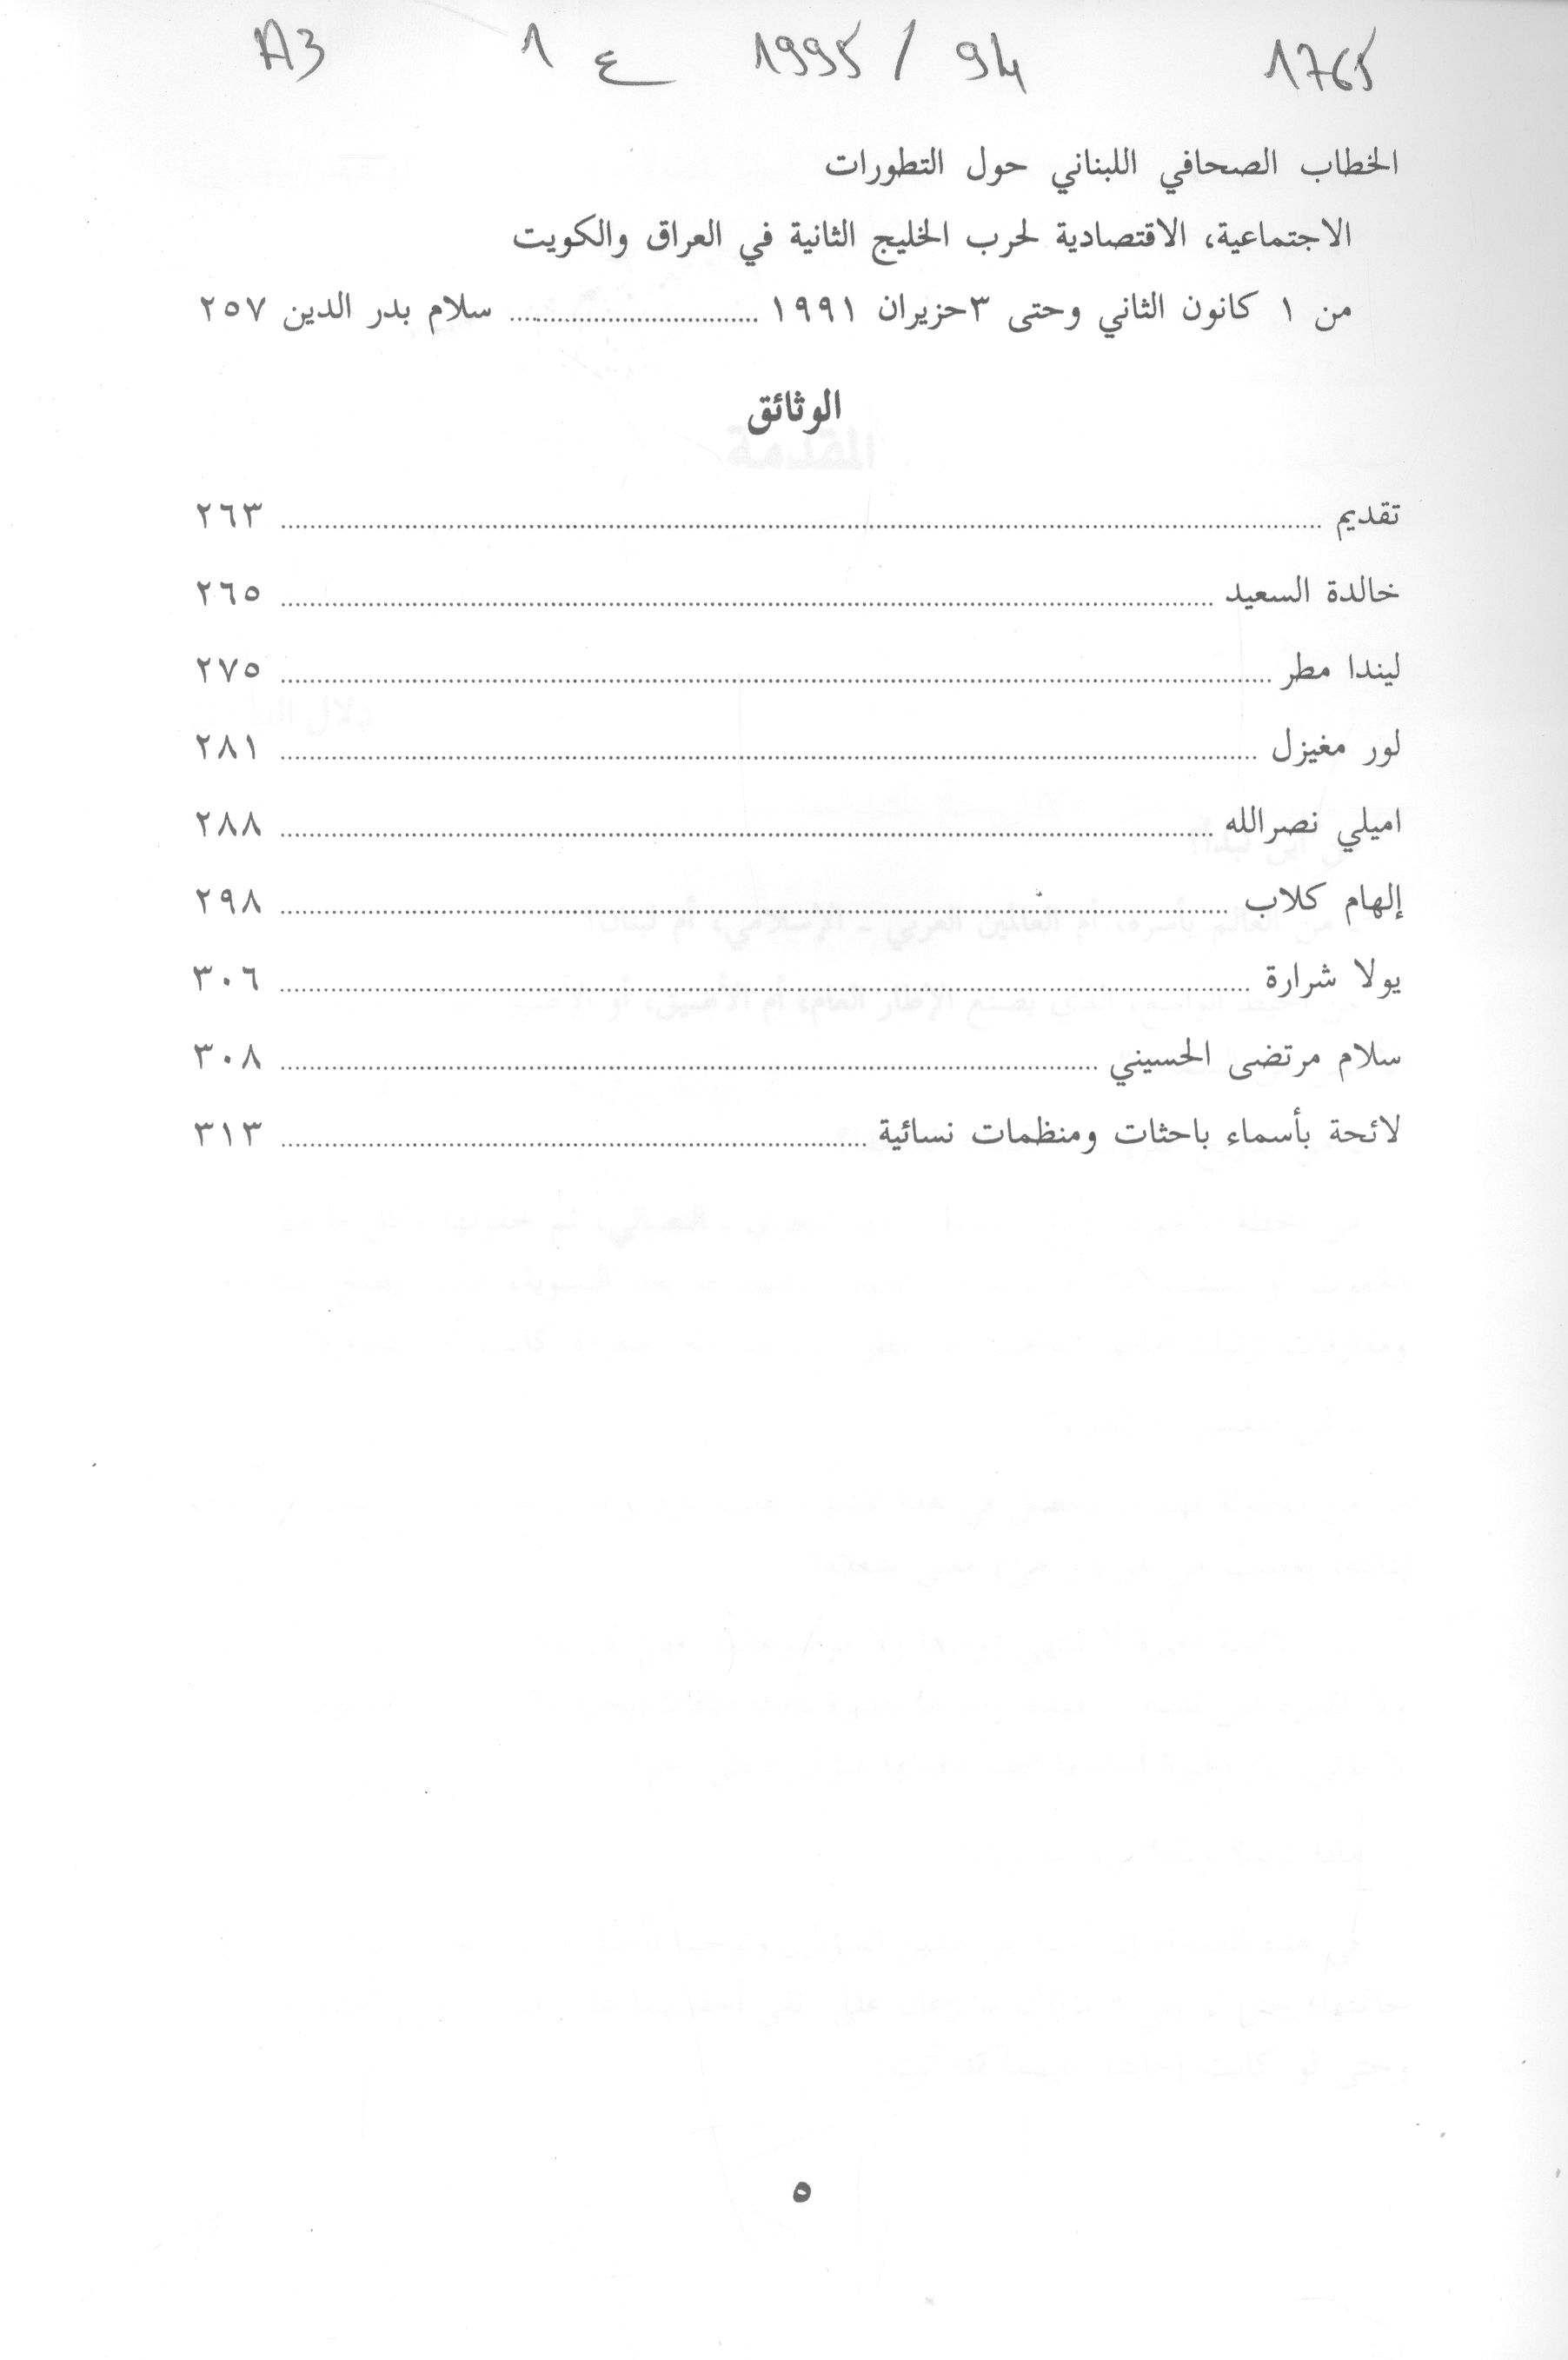 1765 1995 / 94 ع 1 A3
الخطاب الصحافي اللبناني حول التطورات
الاجتماعية، الاقتصادية لحرب الخليج الثانية في العراق والكويت
من ١ كانون الثاني وحتى ٣حزيران ١٩٩١ ........................ سلام بدر الدين ٢٥٧
الوثائق
تقديم ........................ ٢٦٣
خالدة السعيد ........................ ٢٦٥
ليندا مطر ........................ ٢٧٥
لور مغيزل ........................ ٢٨١
اميلي نصرالله ........................ ٢٨٨
إلهام كلاب ........................ ٢٩٨
يولا شرارة ........................ ٣٠٦
سلام مرتضى الحسيني ........................ ٣٠٨
لائحة بأسماء باحثات ومنظمات نسائية ........................ ٣١٣
٥